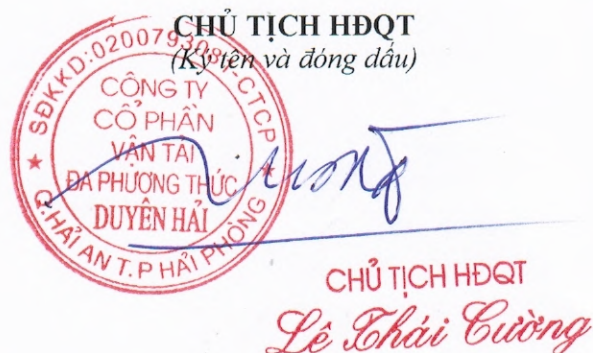 CHỦ TỊCH HĐQT
(Ký tên và đóng dấu)
CÔNG TY
CỔ PHẦN
VẬN TẢI
ĐA PHƯƠNG THỨC
DUYÊN HẢI
★ Q.HẢI AN T.P HẢI PHÒNG ★
CHỦ TỊCH HĐQT
Lê Thái Cường